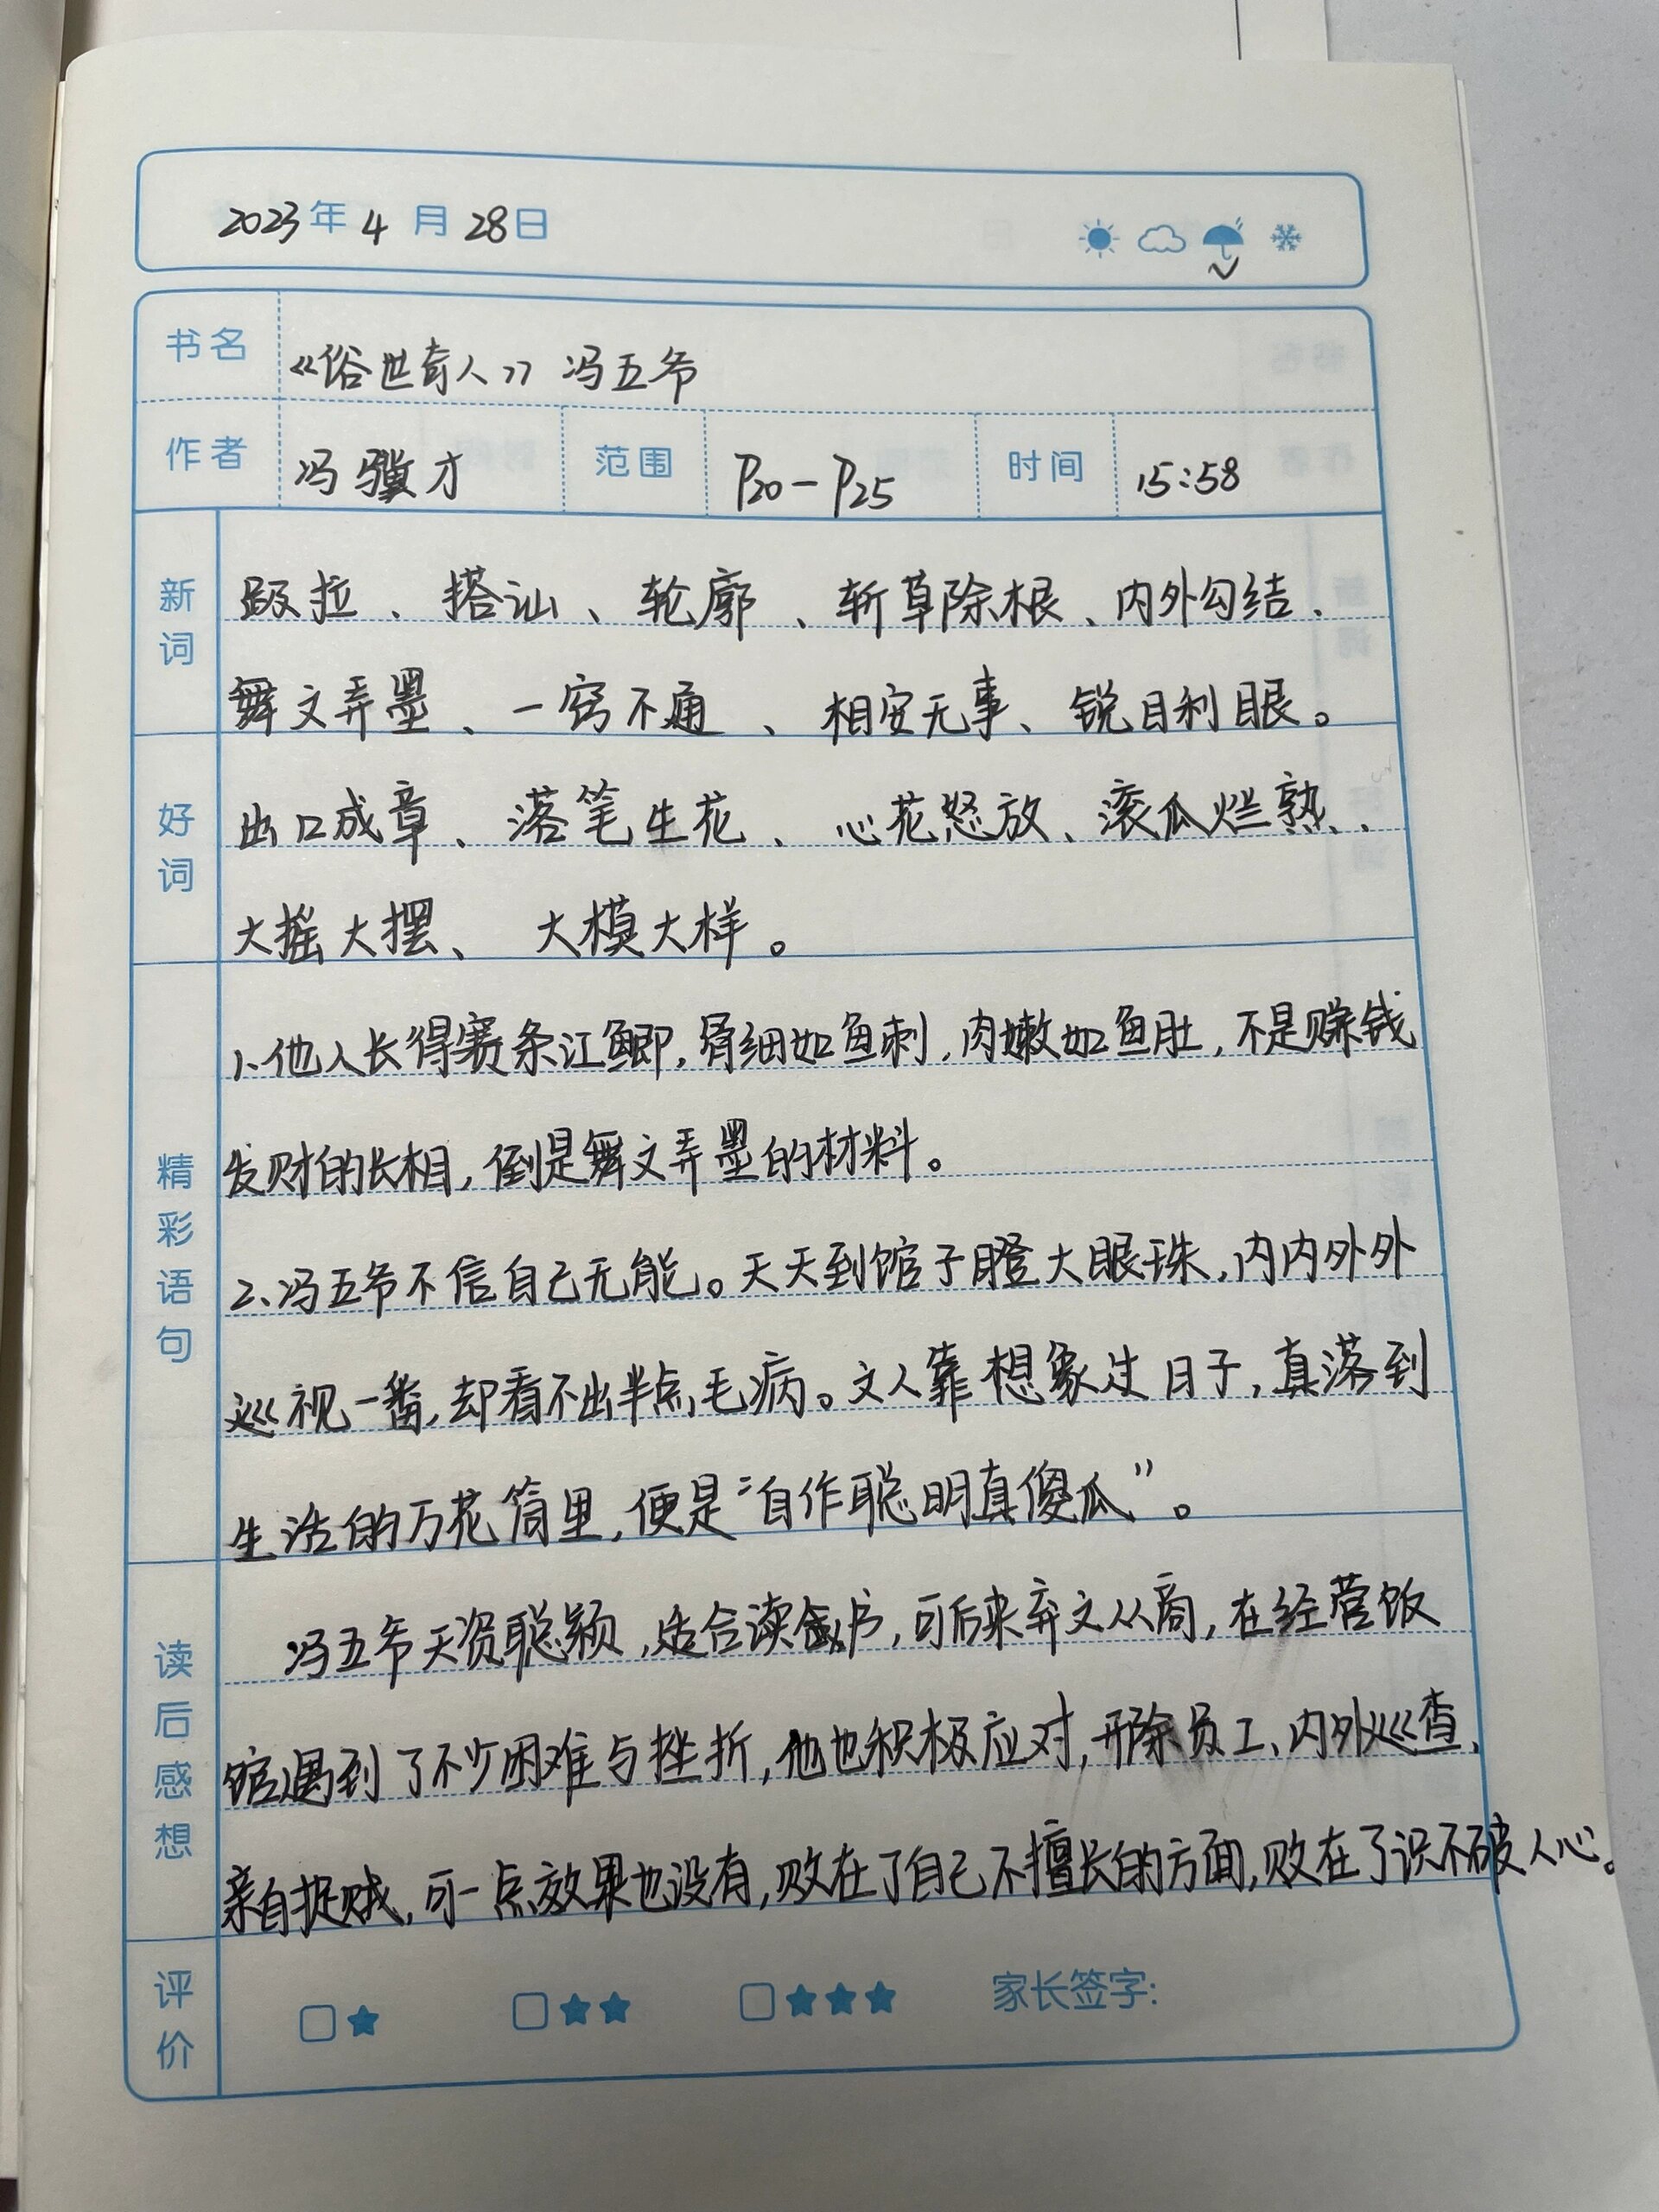 2023年4月28日
书名 《俗世奇人》 冯五爷
作者 冯骥才 范围 P20-P25 时间 15:58
新词 趿拉、搭讪、轮廓、斩草除根、内外勾结、
舞文弄墨、一窍不通、相安无事、锐目利眼。
好词 出口成章、落笔生花、心花怒放、滚瓜烂熟、
大摇大摆、大模大样。
精彩语句 1、他人长得赛条江鲫,骨细如鱼刺,肉嫩如鱼肚,不是赚钱
发财的长相,倒是舞文弄墨的材料。
2、冯五爷不信自己无能。天天到馆子瞪大眼珠,内内外外
巡视一番,却看不出半点毛病。文人靠想象过日子,真落到
生活的万花筒里,便是“自作聪明真傻瓜”。
读后感想 冯五爷天资聪颖,适合读书,可后来弃文从商,在经营饭
馆遇到了不少困难与挫折,他也积极应对,开除员工、内外巡查、
亲自捉贼,可一点效果也没有,败在了自己不擅长的方面,败在了识不破人心。
评价 □★ □★★ □★★★ 家长签字: